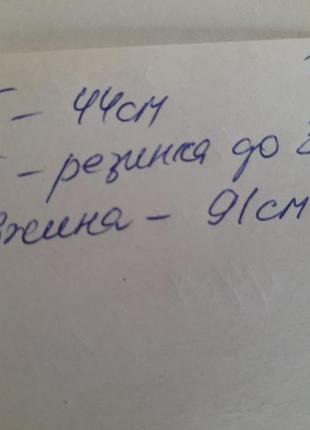 – 44см
– резинка до
вжина – 91см